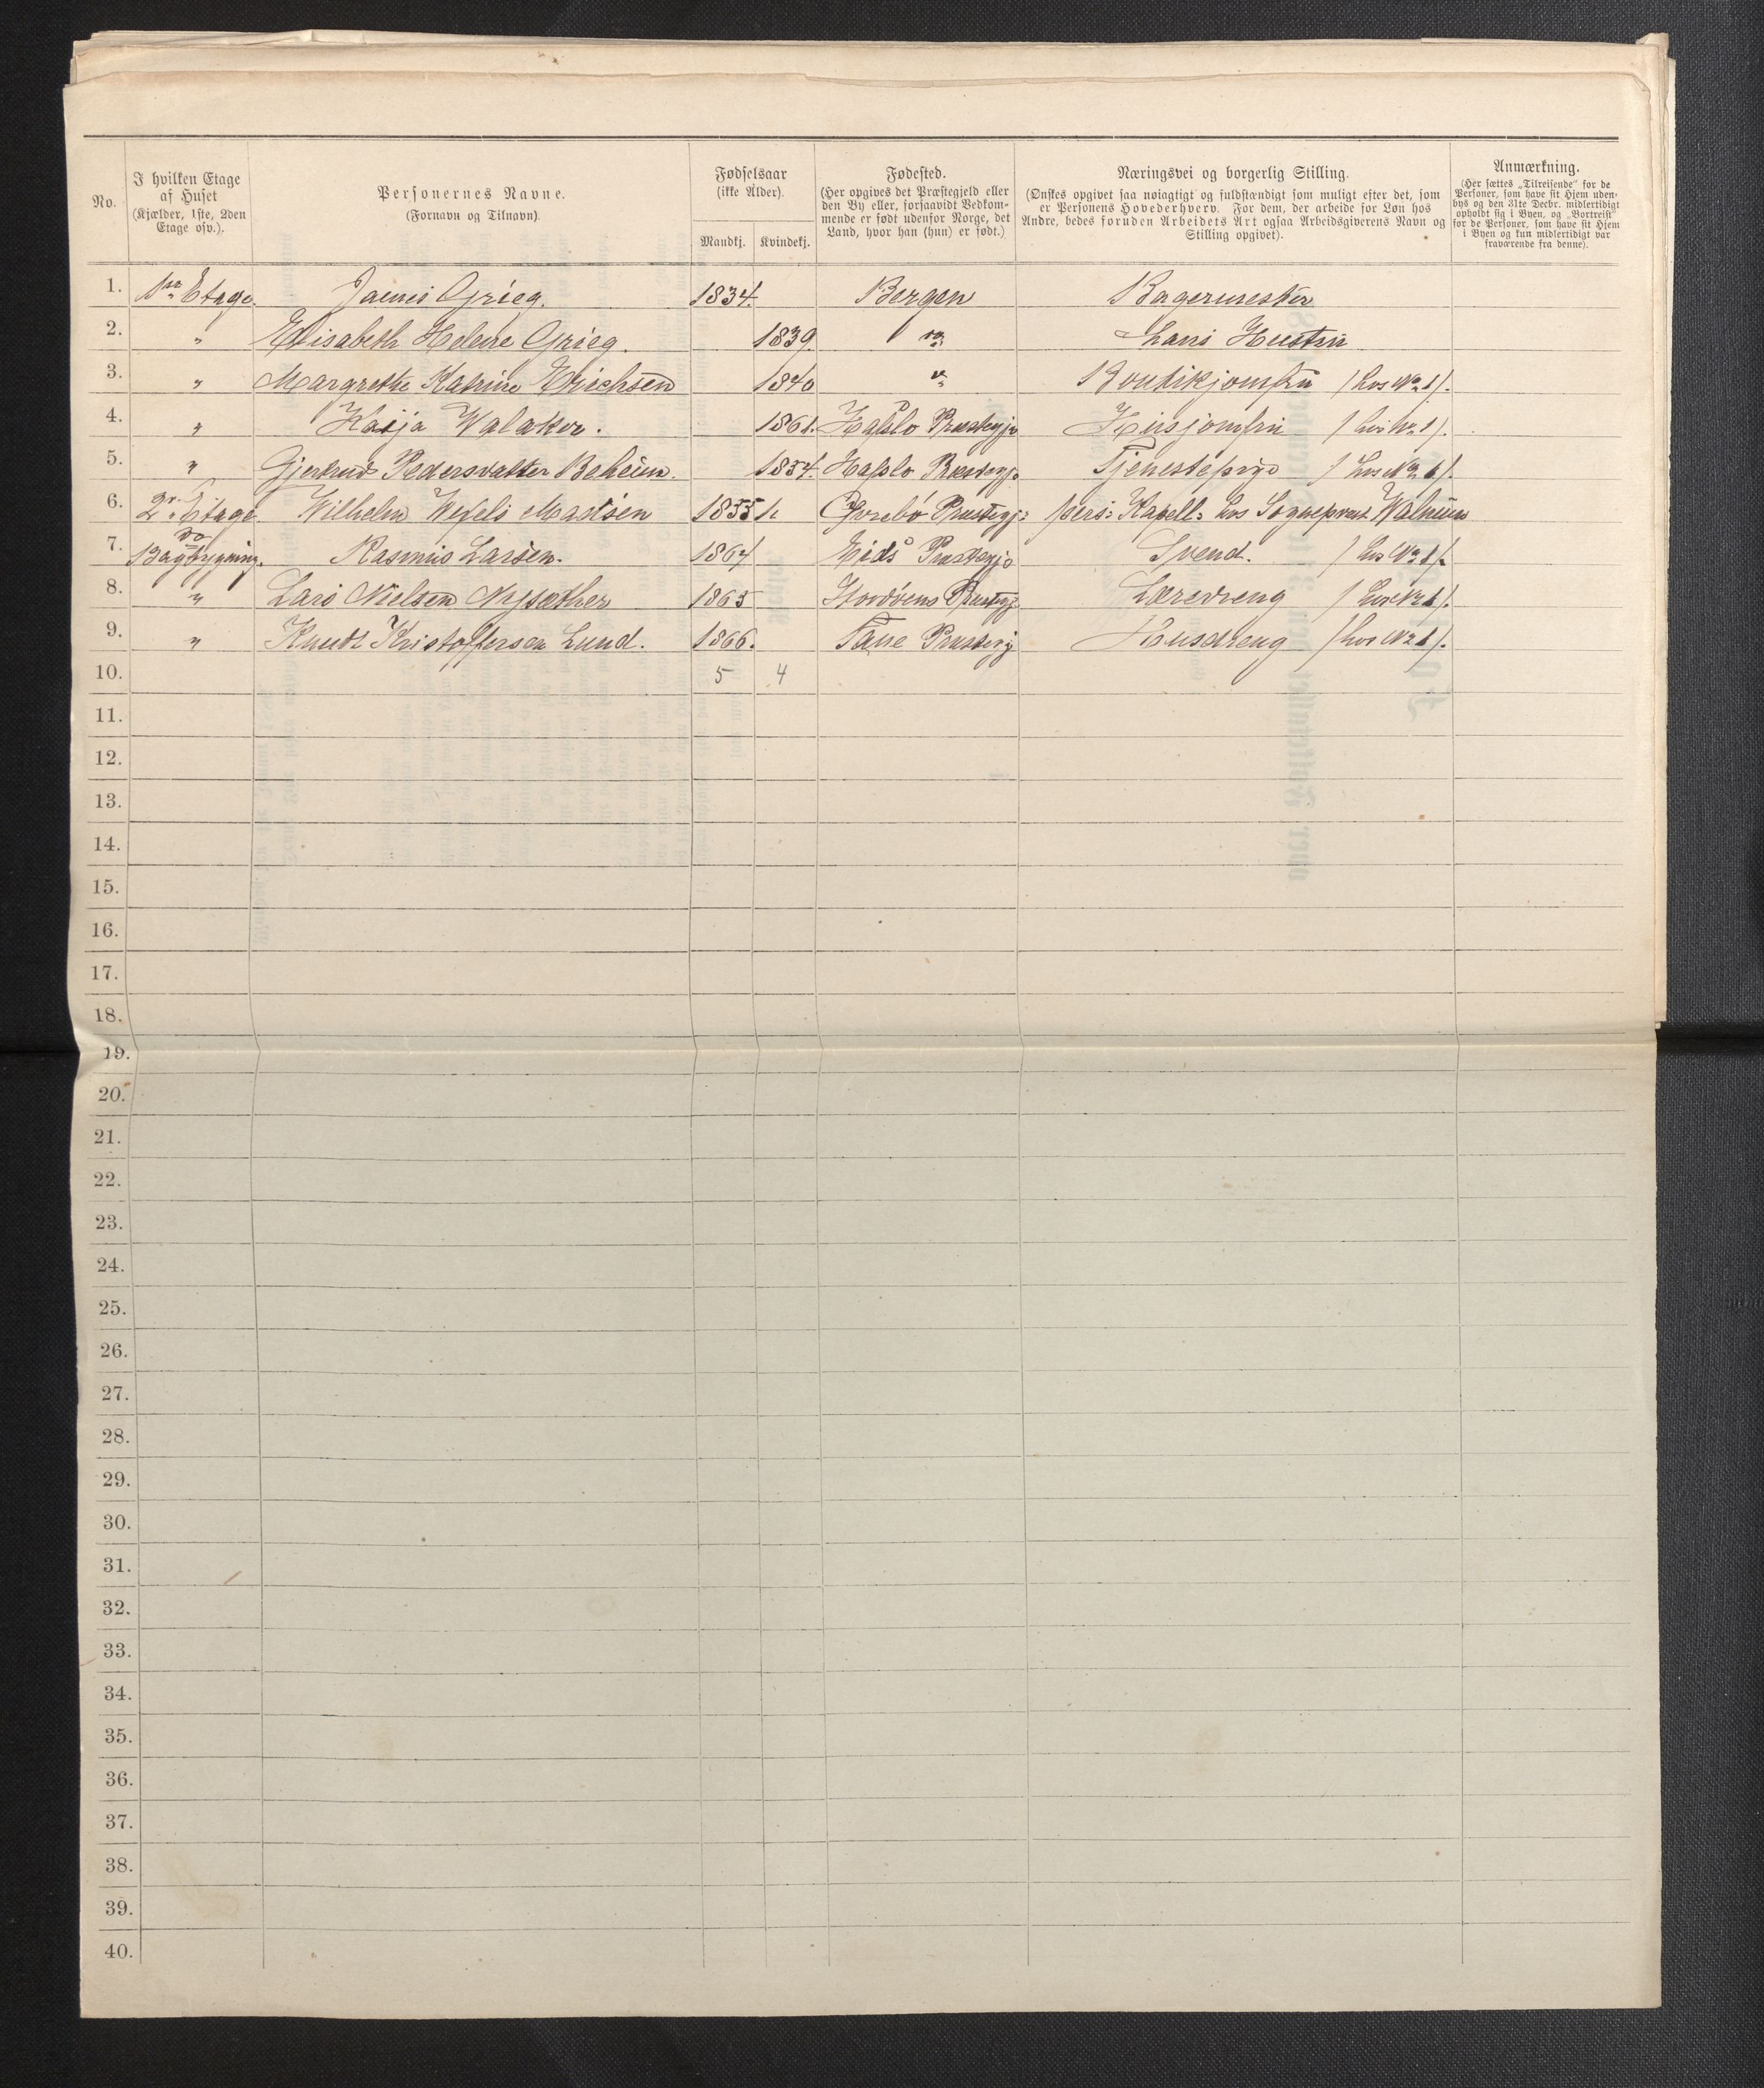 No.
I hvilken Etage af Huset (Kjælder, 1ste, 2den Etage osv.).
Personernes Navne. (Fornavn og Tilnavn).
Fødselsaar (ikke Alder).
Mandkj. Kvindekj.
Fødested. (Her opgives det Præstegjeld eller den By eller, forsaavidt Vedkommende er født udenfor Norge, det Land, hvor han (hun) er født.)
Næringsvei og borgerlig Stilling. (Ønskes opgivet saa nøiagtigt og fuldstændigt som muligt efter det, som er Personens Hovederhverv. For dem, der arbeide for Løn hos Andre, bedes foruden Arbeidets Art ogsaa Arbeidsgiverens Navn og Stilling opgivet).
Anmærkning. (Her sættes „Tilreisende“ for de Personer, som have sit Hjem udenbys og den 31te Decbr. midlertidigt opholdt sig i Byen, og „Bortreist“ for de Personer, som have sit Hjem i Byen og kun midlertidigt var fraværende fra denne).
1. 1ste Etage. James Grieg. 1834. Bergen Bagermester
2. " Elisabeth Helene Grieg. 1839. do Hans Hustru
3. " Margrethe Katrine Erichsen 1840 " Boutikjomfru /hos No 1/.
4. " Kaija Walaker. 1861. Hafslo Præstegj. Husjomfru /hos No 1/.
5. " Gjertrud Pedersdatter Beheim. 1854. Hafslo Præstegj. Tjenestepige /hos No 1/.
6. 2. Etage. Wilhelm Wexels Madsen 1855 Præstegj: pers: Kapell: hos Sognepræst Walnum
7. do Bagbygning. Rasmus Larsen. 1864 Eids Præstegj. Svend. /hos No 1/.
8. " Lars Nielsen Nysæther 1865 Præstegj. Læredreng /hos No 1/.
9. " Knudt Kristoffersen Lund. 1866. Præstegj Husdreng /hos No 1/.
10. 5 4
11.
12.
13.
14.
15.
16.
17.
18.
19.
20.
21.
22.
23.
24.
25.
26.
27.
28.
29.
30.
31.
32.
33.
34.
35.
36.
37.
38.
39.
40.